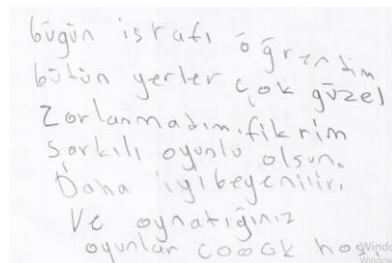 bugün israfı öğrendim
bütün yerler çok güzel
Zorlanmadım. fikrim
şarkılı oyunlu olsun.
Daha iyi beyenilir.
Ve oynatığınız
oyunlar coook hoş.
Windo
Window